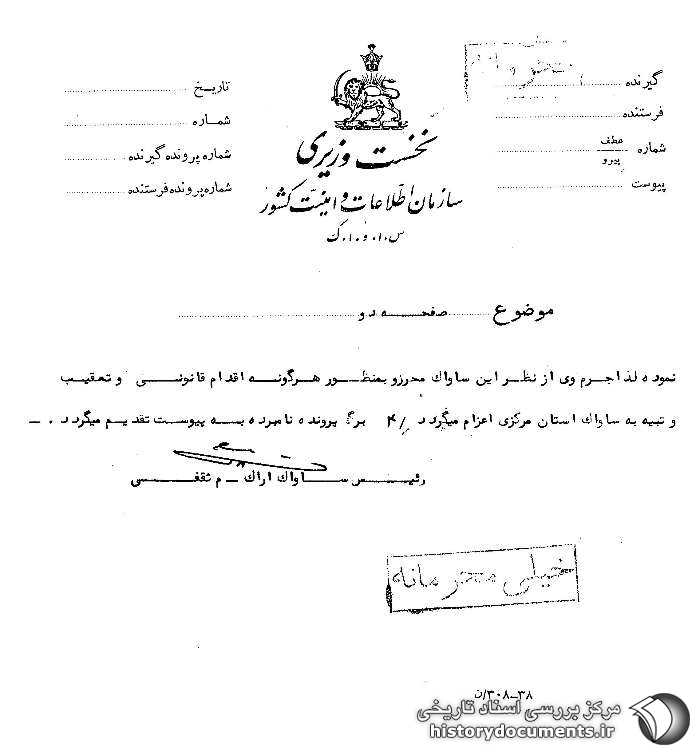 گیرنده
فرستنده
شماره عطف
پیرو
پیوست
نخست وزیری
سازمان اطلاعات و امنیت کشور
س.ا.و.ا.ک
تاریخ
شماره
شماره پرونده گیرنده
شماره پرونده فرستنده
موضوع صفحه دو
نموده لذا جرم وی از نظر این ساواک محرزو بمنظور هرگونه اقدام قانونی و تعقیب
و تنبیه به ساواک استان مرکزی اعزام میگردد برگ پرونده نامبرده به پیوست تقدیم میگردد . –
رئیس ساواک اراک – م ثقفی
خیلی محرمانه
۳۸–۳۰۸/ن
مرکز بررسی اسناد تاریخی
historydocuments.ir